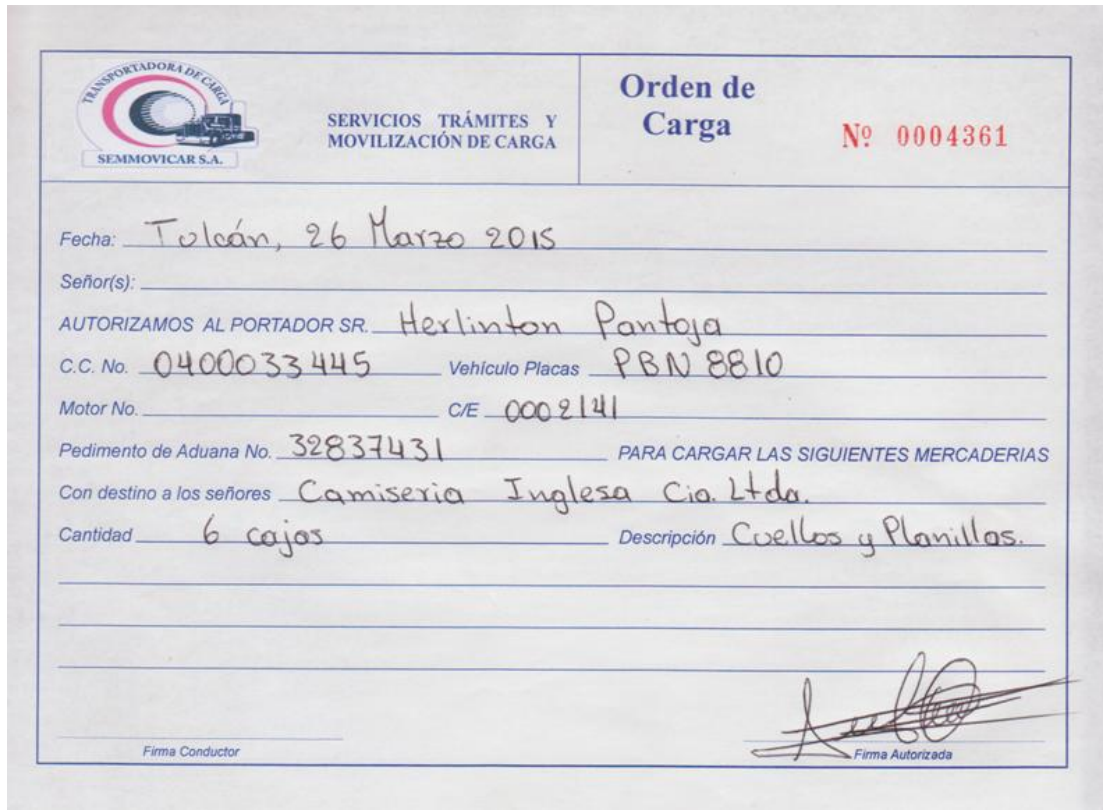 TRANSPORTADORA DE CARGA
SEMMOVICAR S.A.
SERVICIOS TRÁMITES Y
MOVILIZACIÓN DE CARGA
Orden de
Carga
Nº 0004361
Fecha: Tulcán, 26 Marzo 2015
Señor(s):
AUTORIZAMOS AL PORTADOR SR. Herlinton Pantoja
C.C. No. 0400033445 Vehículo Placas PBN 8810
Motor No. C/E 0002141
Pedimento de Aduana No. 32837431 PARA CARGAR LAS SIGUIENTES MERCADERIAS
Con destino a los señores Camiseria Inglesa Cia. Ltda.
Cantidad 6 cajas Descripción Cuellos y Planillas.
Firma Conductor Firma Autorizada